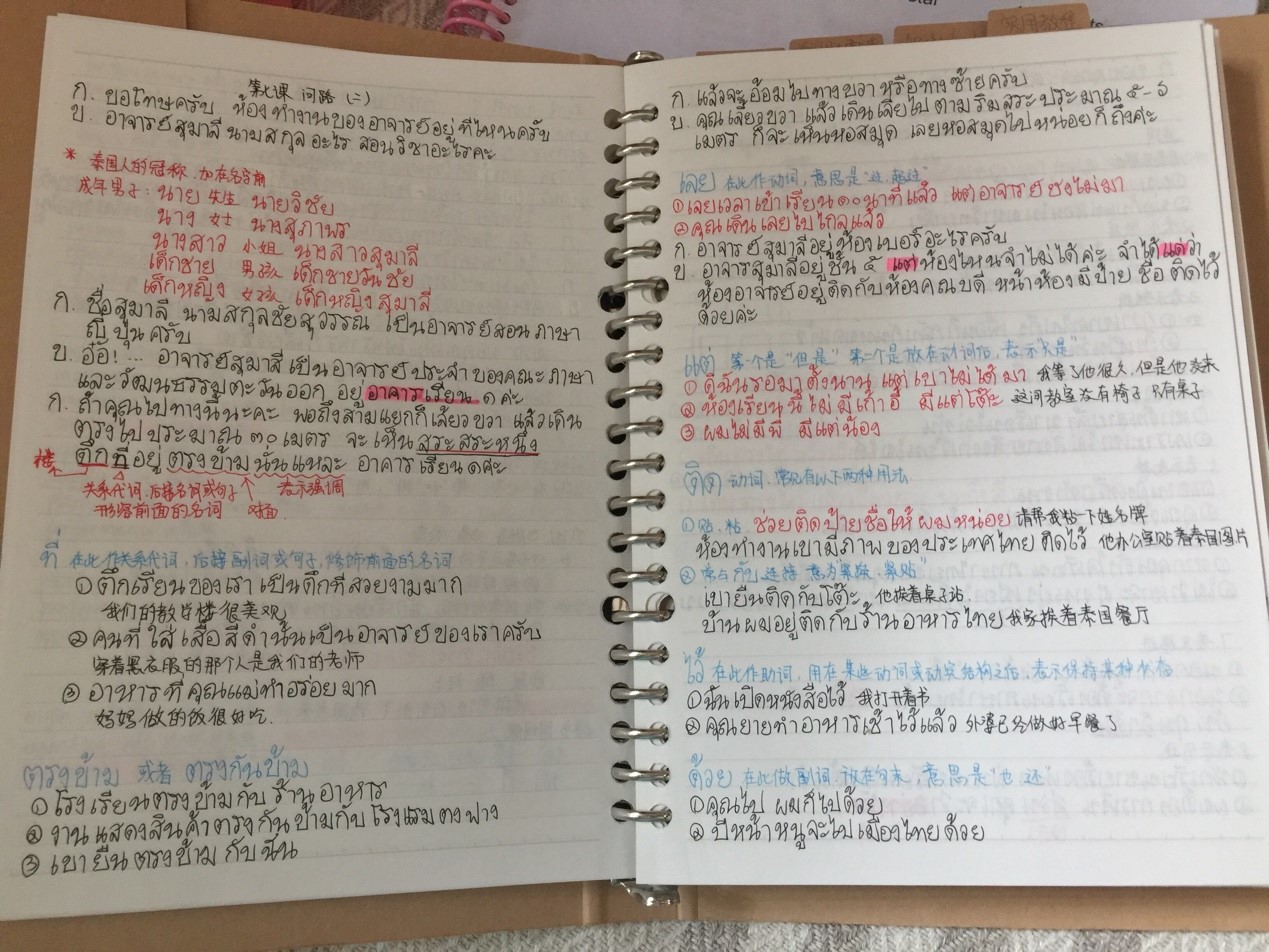 实用教程
第七课 问路(二)
ก. ขอโทษครับ ห้องทำงานของอาจารย์อยู่ที่ไหนครับ
ข. อาจารย์สุมาลี นามสกุลอะไร สอนวิชาอะไรคะ
* 泰国人的冠称，加在名字前
成年男子: นาย 先生 นายวิชัย
นาง 女士 นางสุภาพร
นางสาว 小姐 นางสาวสุมาลี
เด็กชาย 男孩 เด็กชายวันชัย
เด็กหญิง 女孩 เด็กหญิงสุมาลี
ก. ชื่อสุมาลี นามสกุลชัยสุวรรณ เป็นอาจารย์สอนภาษา
ญี่ปุ่นครับ
ข. อ๋อ! ... อาจารย์สุมาลีเป็นอาจารย์ประจำของคณะภาษา
และวัฒนธรรมตะวันออก อยู่อาคารเรียน ๑ ค่ะ
ก. ถ้าคุณไปทางนี้นะคะ พอถึงสามแยกก็เลี้ยวขวา แล้วเดิน
ตรงไปประมาณ ๓๐ เมตร จะเห็นสระสระหนึ่ง
楼 ตึกที่อยู่ตรงข้ามนั่นแหละ อาคารเรียน๑ค่ะ
关系代词，后接名词或句子 表示强调
形容前面的名词 对面
ที่ 在此作关系代词，后接副词或句子，修饰前面的名词
① ตึกเรียนของเราเป็นตึกที่สวยงามมาก
我们的教学楼很美观
② คนที่ใส่เสื้อสีดำนั้นเป็นอาจารย์ของเราครับ
穿着黑衣服的那个人是我们的老师
③ อาหารที่คุณแม่ทำอร่อยมาก
妈妈做的饭很好吃.
ตรงข้าม 或者 ตรงกันข้าม
① โรงเรียนตรงข้ามกับร้านอาหาร
② งานแสดงสินค้าตรงกันข้ามกับโรงแรมตงฟาง
③ เขายืนตรงข้ามกับฉัน
ก. แล้วจะอ้อมไปทางขวาหรือทางซ้ายครับ
ข. คุณเลี้ยวขวา แล้วเดินเฉียงไปตามริมสระประมาณ ๕-๖
เมตร ก็จะเห็นหอสมุด เลยหอสมุดไปหน่อยก็ถึงค่ะ
เลย 在此作动词，意思是"过，超过"
① เลยเวลาเข้าเรียน๑๐นาทีแล้ว แต่อาจารย์ยังไม่มา
② คุณเดินเลยไปไกลแล้ว
ก. อาจารย์สุมาลีอยู่ห้องเบอร์อะไรครับ
ข. อาจารย์สุมาลีอยู่ชั้น ๕ แต่ห้องไหนจำไม่ได้ค่ะ จำได้แต่ว่า
ห้องอาจารย์อยู่ติดกับห้องคณบดี หน้าห้องมีป้ายชื่อติดไว้
ด้วยค่ะ
แต่ 第一个是"但是" 第二个是放在动词后，表示"只是"
① ดิฉันรอมาตั้งนาน แต่เขาไม่ได้มา 我等了他很久，但是他没来
② ห้องเรียนนี้ไม่มีเก้าอี้ มีแต่โต๊ะ 这间教室没有椅子 只有桌子
③ ผมไม่มีพี่ มีแต่น้อง
ติด 动词，常见有以下两种用法
① 贴，粘 ช่วยติดป้ายชื่อให้ผมหน่อย 请帮我粘一下姓名牌
ห้องทำงานเขามีภาพของประเทศไทยติดไว้ 他办公室贴着泰国图片
② 常与กับ连接 意为"紧挨，紧贴"
เขายืนติดกับโต๊ะ 他挨着桌子站
บ้านผมอยู่ติดกับร้านอาหารไทย 我家挨着泰国餐厅
ไว้ 在此作助词，用在某些动词或动宾结构之后，表示保持某种状态
① ฉันเปิดหนังสือไว้ 我打开着书
② คุณยายทำอาหารเช้าไว้แล้ว 外婆已经做好早餐了
ด้วย 在此做副词，放在句末，意思是"也，还"
① คุณไป ผมก็ไปด้วย
② ปีหน้าหนูจะไปเมืองไทยด้วย